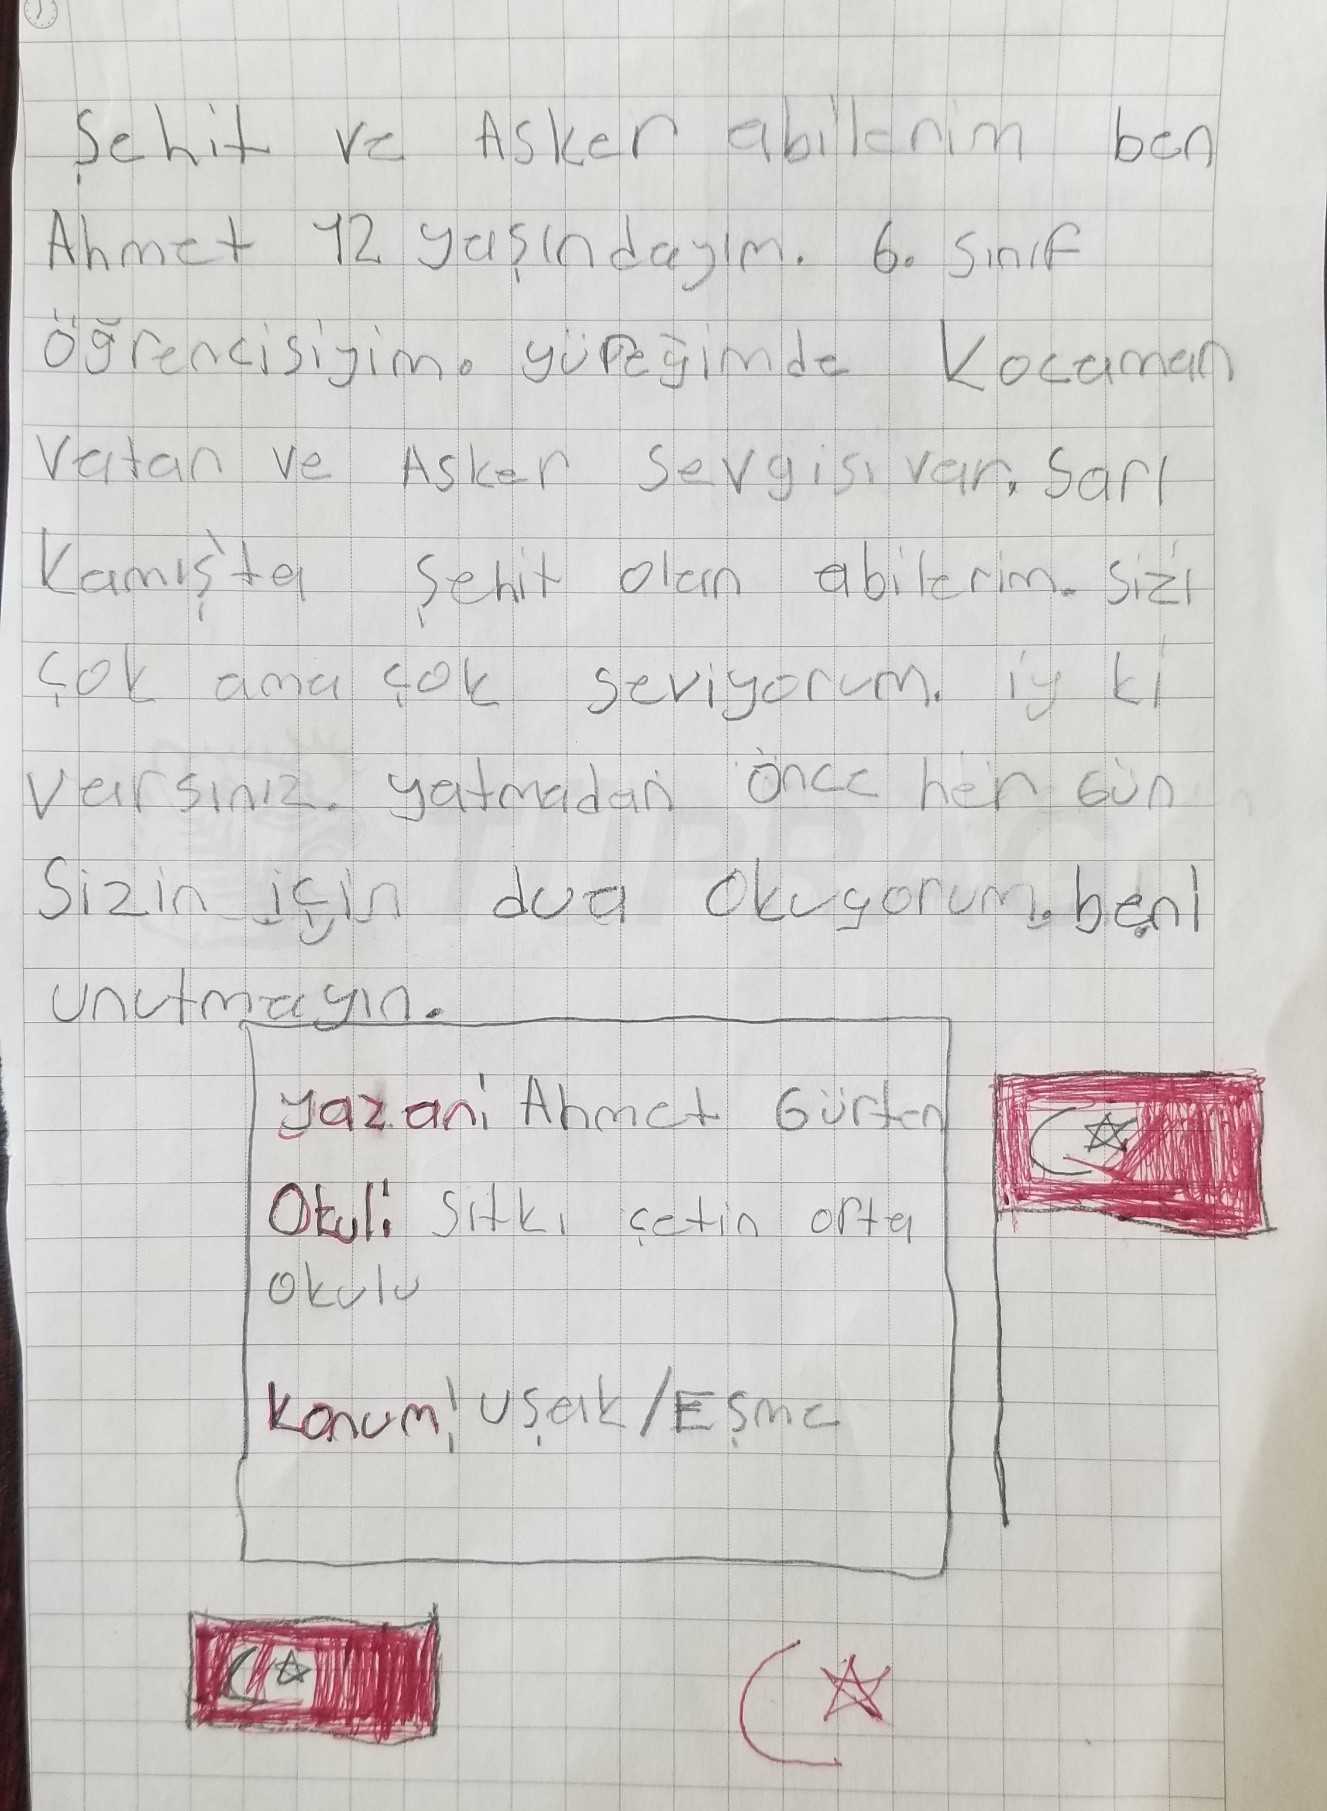 Şehit ve Asker abilerim ben
Ahmet 12 yaşındayım. 6. sınıf
öğrencisiyim. yüreğimde kocaman
vatan ve Asker sevgisi var. Sarı
Kamış'ta şehit olan abilerim. sizi
çok ama çok seviyorum. iy ki
varsınız. yatmadan önce her Gün
Sizin için dua okuyorum. beni
unutmayın.
yazan: Ahmet Gürten
Okul: Sıtkı çetin orta
okulu
Konum: uşak/Eşme